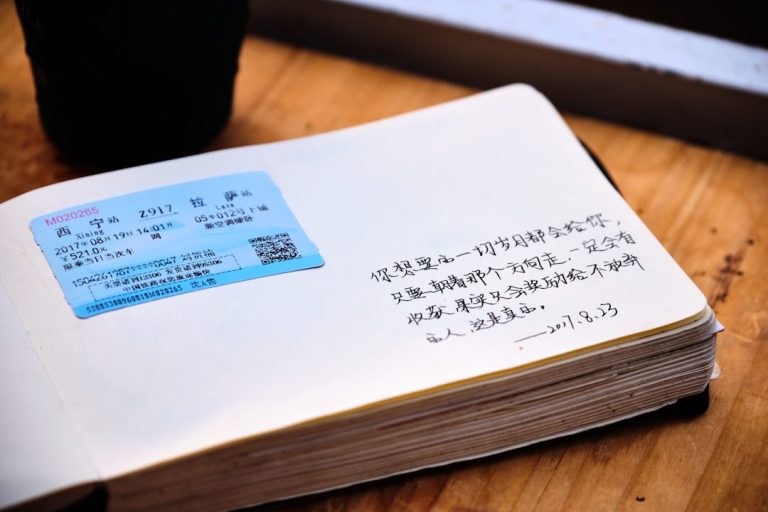 M020265
西宁站 Z917 拉萨站
Xining Lasa
2017年08月19日14:01开 05车012号下铺
¥521.0元 网 新空调硬卧
限乘当日当次车
买票请到12306 发货请到95306
中国铁路祝您旅途愉快
沈A售
你想要的一切岁月都会给你，
只要朝着那个方向走，一定会有
收获,果实只会奖励给不放弃
的人,这是真的。
——2017.8.23